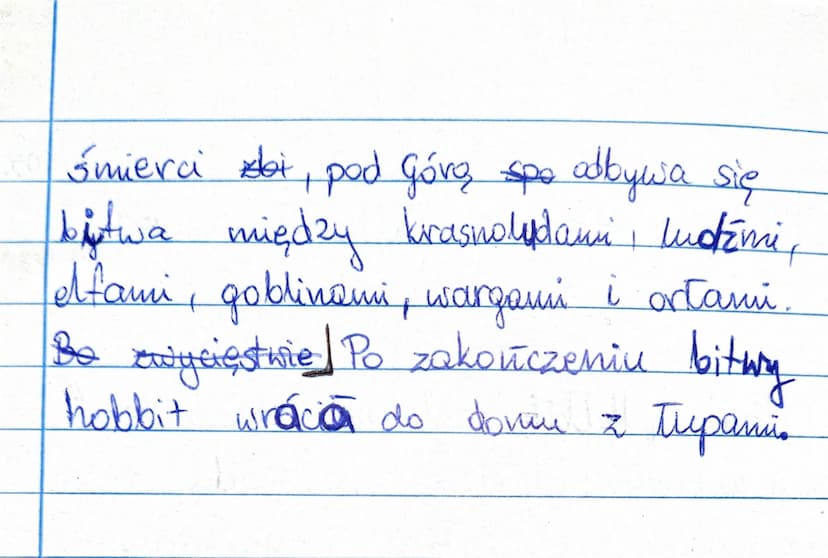 śmierci zbi, pod Górą spo odbywa się
bitwa między krasnoludami, ludźmi,
elfami, goblinami, wargami i orłami.
Bo zwycięstwie Po zakończeniu bitwy
hobbit wraca do domu z łupami.